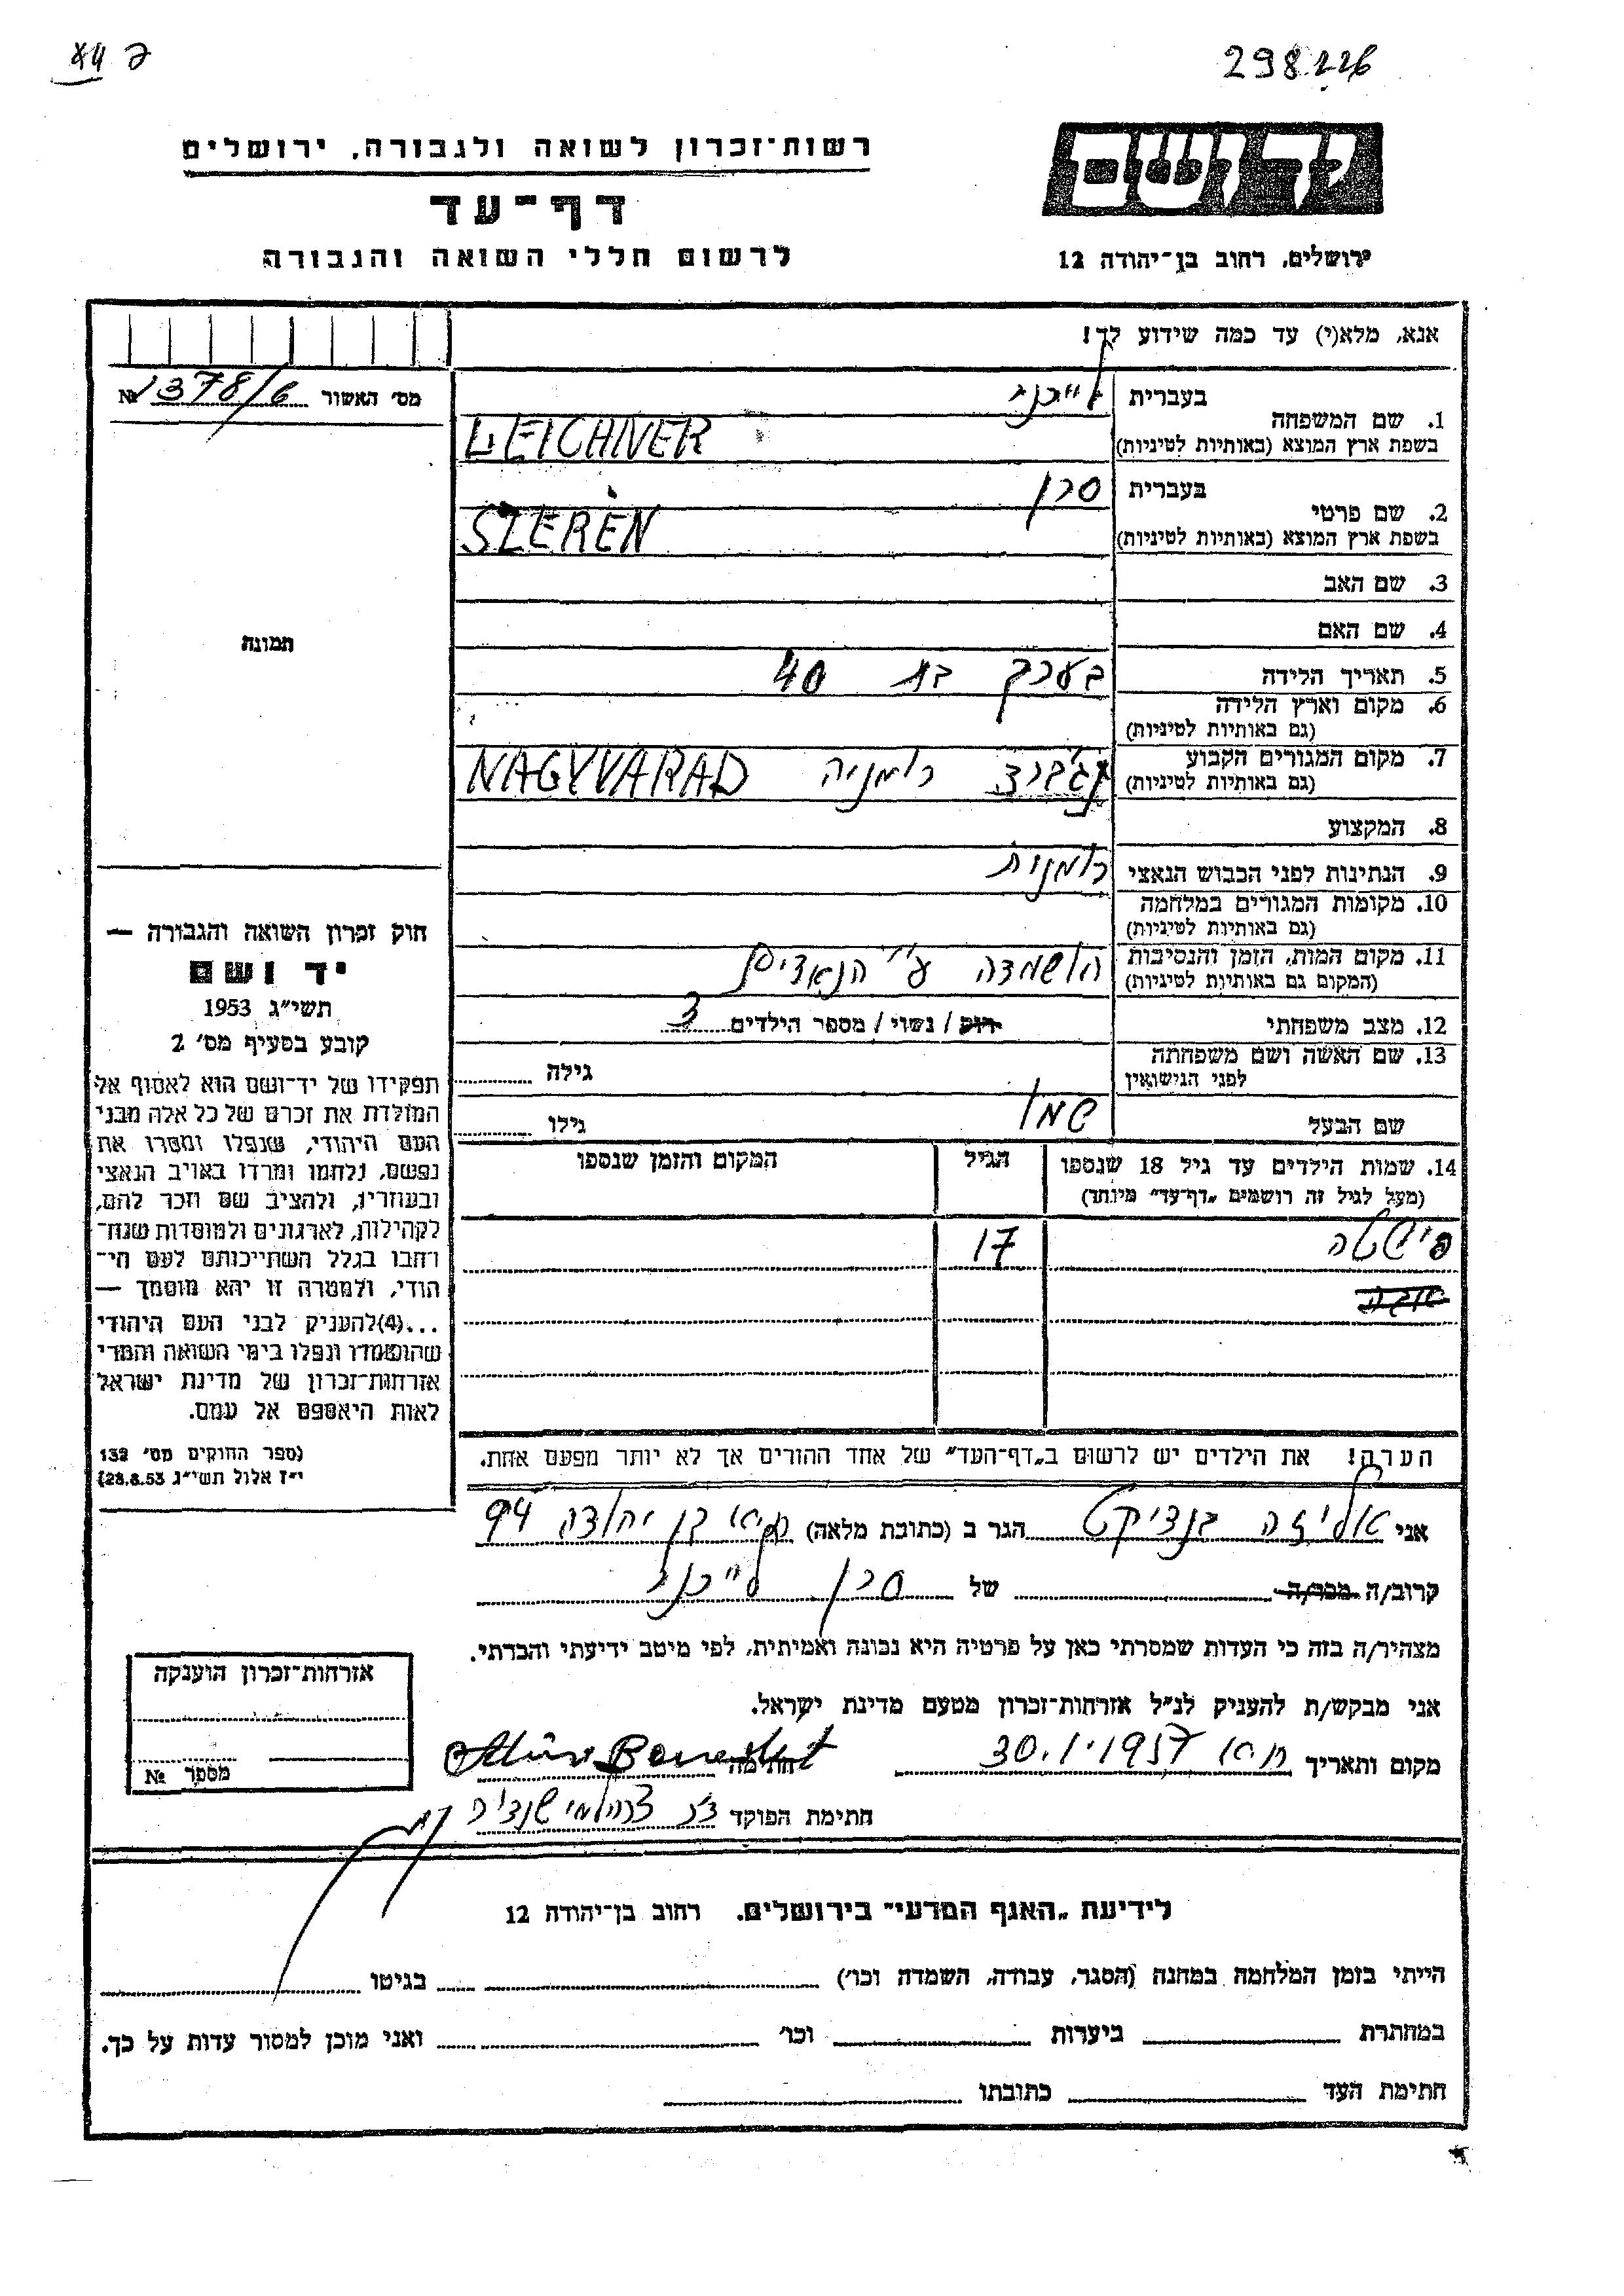 298226
רשות־זכרון לשואה ולגבורה, ירושלים
יד ושם
דף־עד
לרשום חללי השואה והגבורה
ירושלים, רחוב בן־יהודה 12
אנא, מלא(י) עד כמה שידוע לך!
מס' האשור № 378/6
1. שם המשפחה
בעברית לייכנר
בשפת ארץ המוצא (באותיות לטיניות) LEICHNER
2. שם פרטי
בעברית סרן
בשפת ארץ המוצא (באותיות לטיניות) SZERÉN
3. שם האב
4. שם האם
5. תאריך הלידה בערך בת 40
6. מקום וארץ הלידה
(גם באותיות לטיניות)
7. מקום המגורים הקבוע נג'ורד רומניה NAGYVARAD
(גם באותיות לטיניות)
8. המקצוע
9. הנתינות לפני הכבוש הנאצי רומנית
10. מקומות המגורים במלחמה
(גם באותיות לטיניות)
11. מקום המות, הזמן והנסיבות הושמדה ע"י הנאצים
(המקום גם באותיות לטיניות)
12. מצב משפחתי רוק / נשוי / מספר הילדים 3
13. שם האשה ושם משפחתה
לפני הנישואין
גילה
שם הבעל שמו
גילו
14. שמות הילדים עד גיל 18 שנספו
(מעל לגיל זה רושמים „דף־עד" מיוחד)
הגיל
המקום והזמן שנספו
פישטה 17
הערה! את הילדים יש לרשום ב„דף־העד" של אחד ההורים אך לא יותר מפעם אחת.
תמונה
חוק זכרון השואה והגבורה —
יד ושם
תשי"ג 1953
קובע בסעיף מס' 2
תפקידו של יד־ושם הוא לאסוף אל
המולדת את זכרם של כל אלה מבני
העם היהודי, שנפלו ומסרו את
נפשם, נלחמו ומרדו באויב הנאצי
ובעוזריו, ולהציב שם וזכר להם,
לקהילות, לארגונים ולמוסדות שנח־
רבו בגלל השתייכותם לעם הי־
הודי, ולמטרה זו יהא מוסמך —
...(4)להעניק לבני העם היהודי
שהושמדו ונפלו בימי השואה והמרי
אזרחות־זכרון של מדינת ישראל
לאות היאספם אל עמם.
(ספר החוקים מס' 132
י"ז אלול תשי"ג 28.8.53)
אני אליזה בנדיקט הגר ב (כתובת מלאה) חיפה בן יהודה 94
קרוב/ה מכר/ה של סרן לייכנר
מצהיר/ה בזה כי העדות שמסרתי כאן על פרטיה היא נכונה ואמיתית, לפי מיטב ידיעתי והכרתי.
אני מבקש/ת להעניק לנ"ל אזרחות־זכרון מטעם מדינת ישראל.
מקום ותאריך חיפה 30.1.1957 חתימה
חתימת הפוקד
אזרחות־זכרון הוענקה
מספר №
לידיעת „האגף המדעי" בירושלים, רחוב בן־יהודה 12
הייתי בזמן המלחמה במחנה (הסגר, עבודה, השמדה וכו') בגיטו
במחתרת ביערות וכו' ואני מוכן למסור עדות על כך.
חתימת העד כתובתו